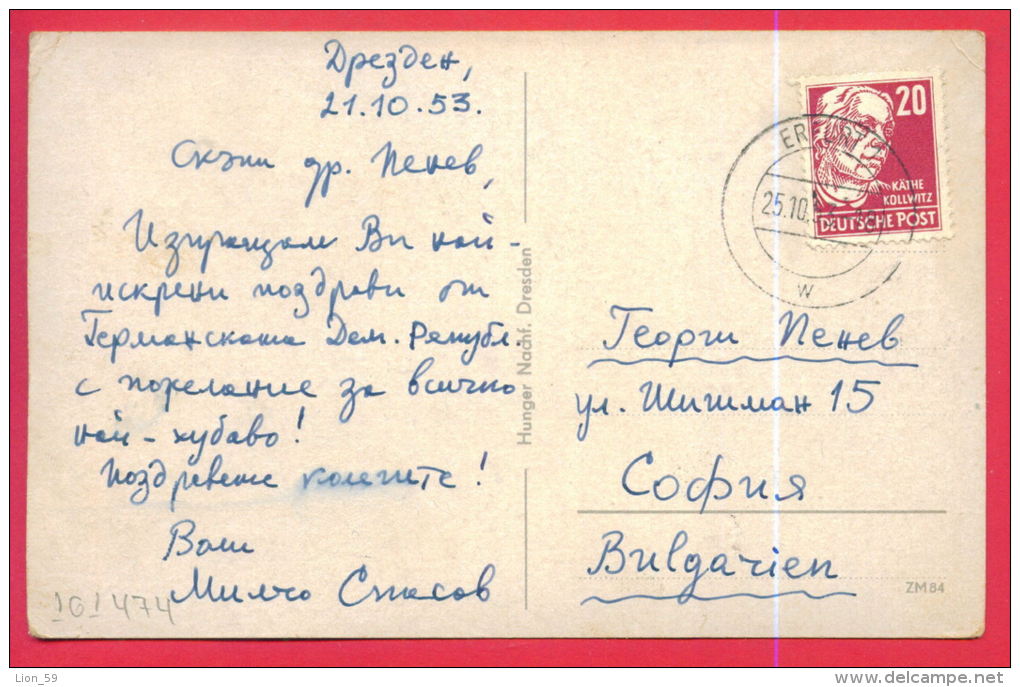 Дрезден,
21.10.53.
Скъпи др. Пенев,
Изпращам Ви най-
искрени поздрави от
Германската Дем. Републ.
с пожелание за всичко
най-хубаво!
Поздравете колегите!
Ваш
Милчо Спасов
101474
Hunger Nachf. Dresden
20
KÄTHE
KOLLWITZ
DEUTSCHE POST
25.10.
W
Георги Пенев
ул. Шишман 15
София
Bulgarien
ZM84
Lion_59
delcampe.net